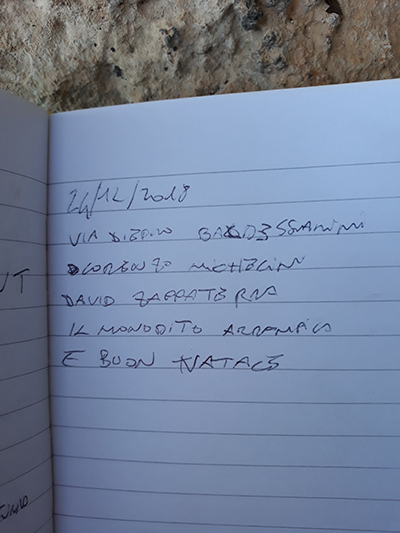 24/12/2018
VIA DIEDRO BALDESSARINI
LORENZO MICHELINI
DAVID ZAPPATERRA
IL MONODITO ARRAMPICA
E BUON NATALE